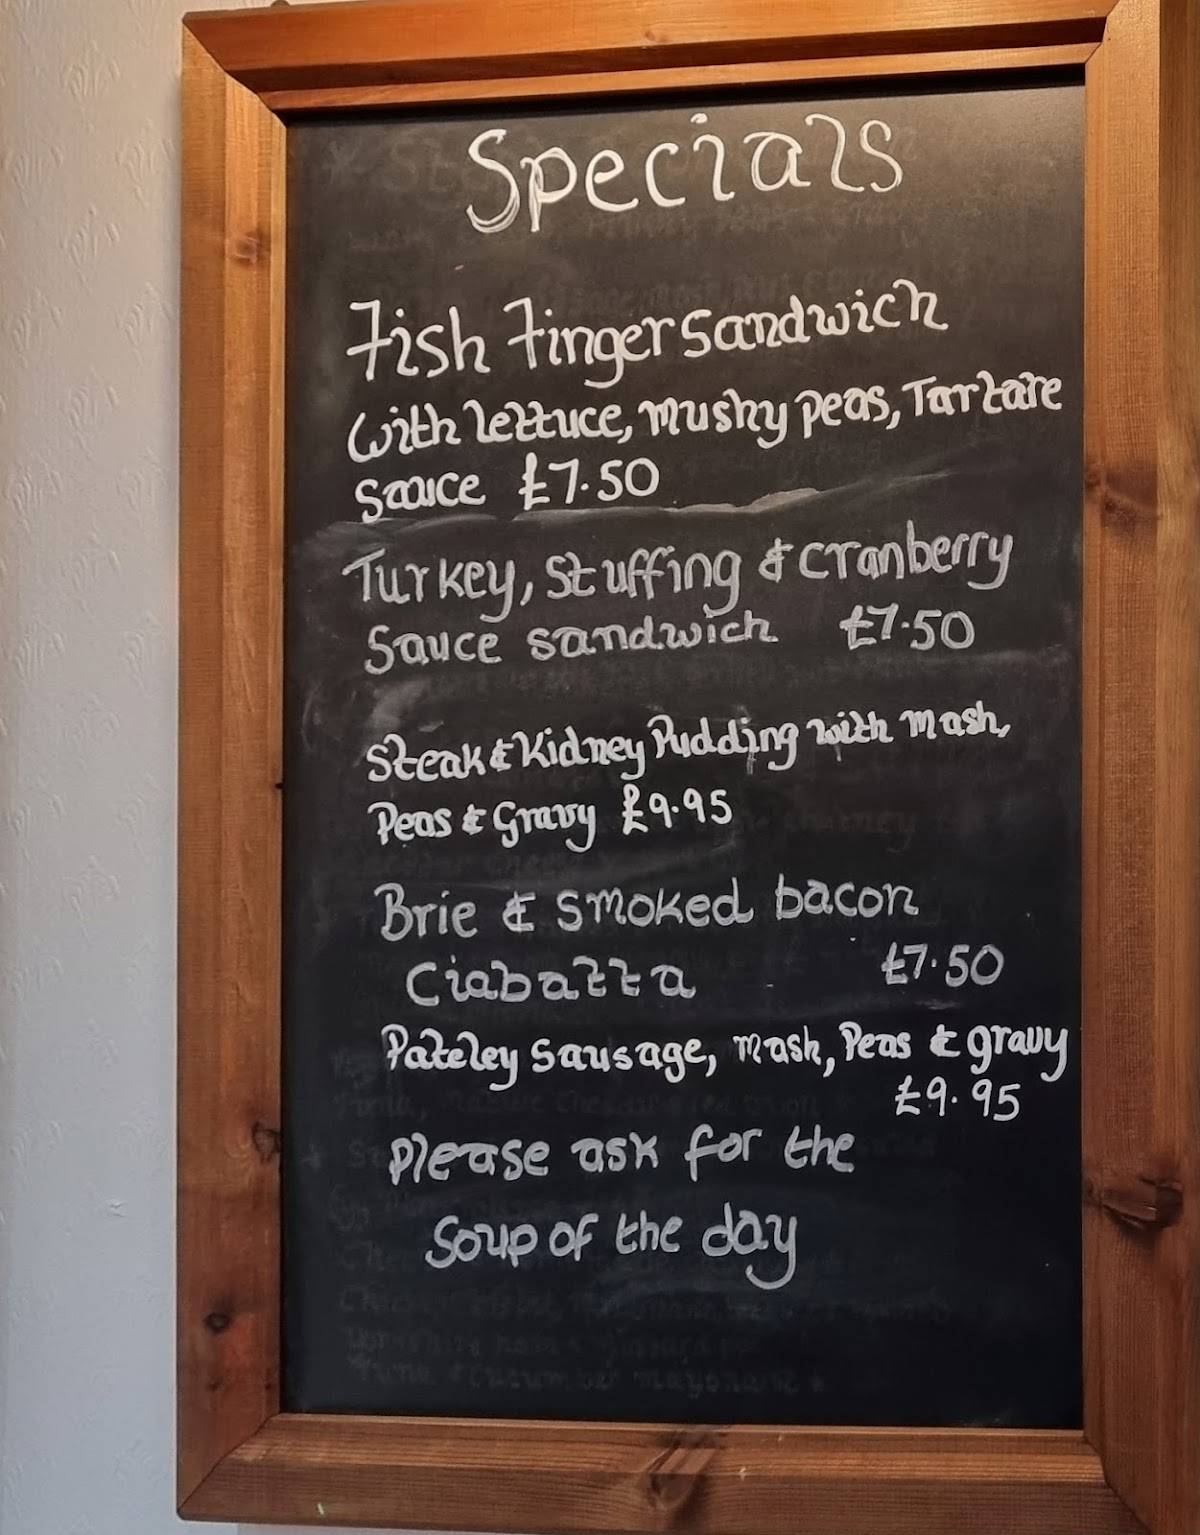 Specials
Fish Finger Sandwich
with lettuce, mushy peas, Tartare
sauce £7.50
Turkey, stuffing & cranberry
Sauce sandwich £7.50
Steak & Kidney Pudding with mash,
Peas & Gravy £9.95
Brie & smoked bacon
Ciabatta £7.50
Pateley Sausage, mash, Peas & gravy
£9.95
Please ask for the
Soup of the day